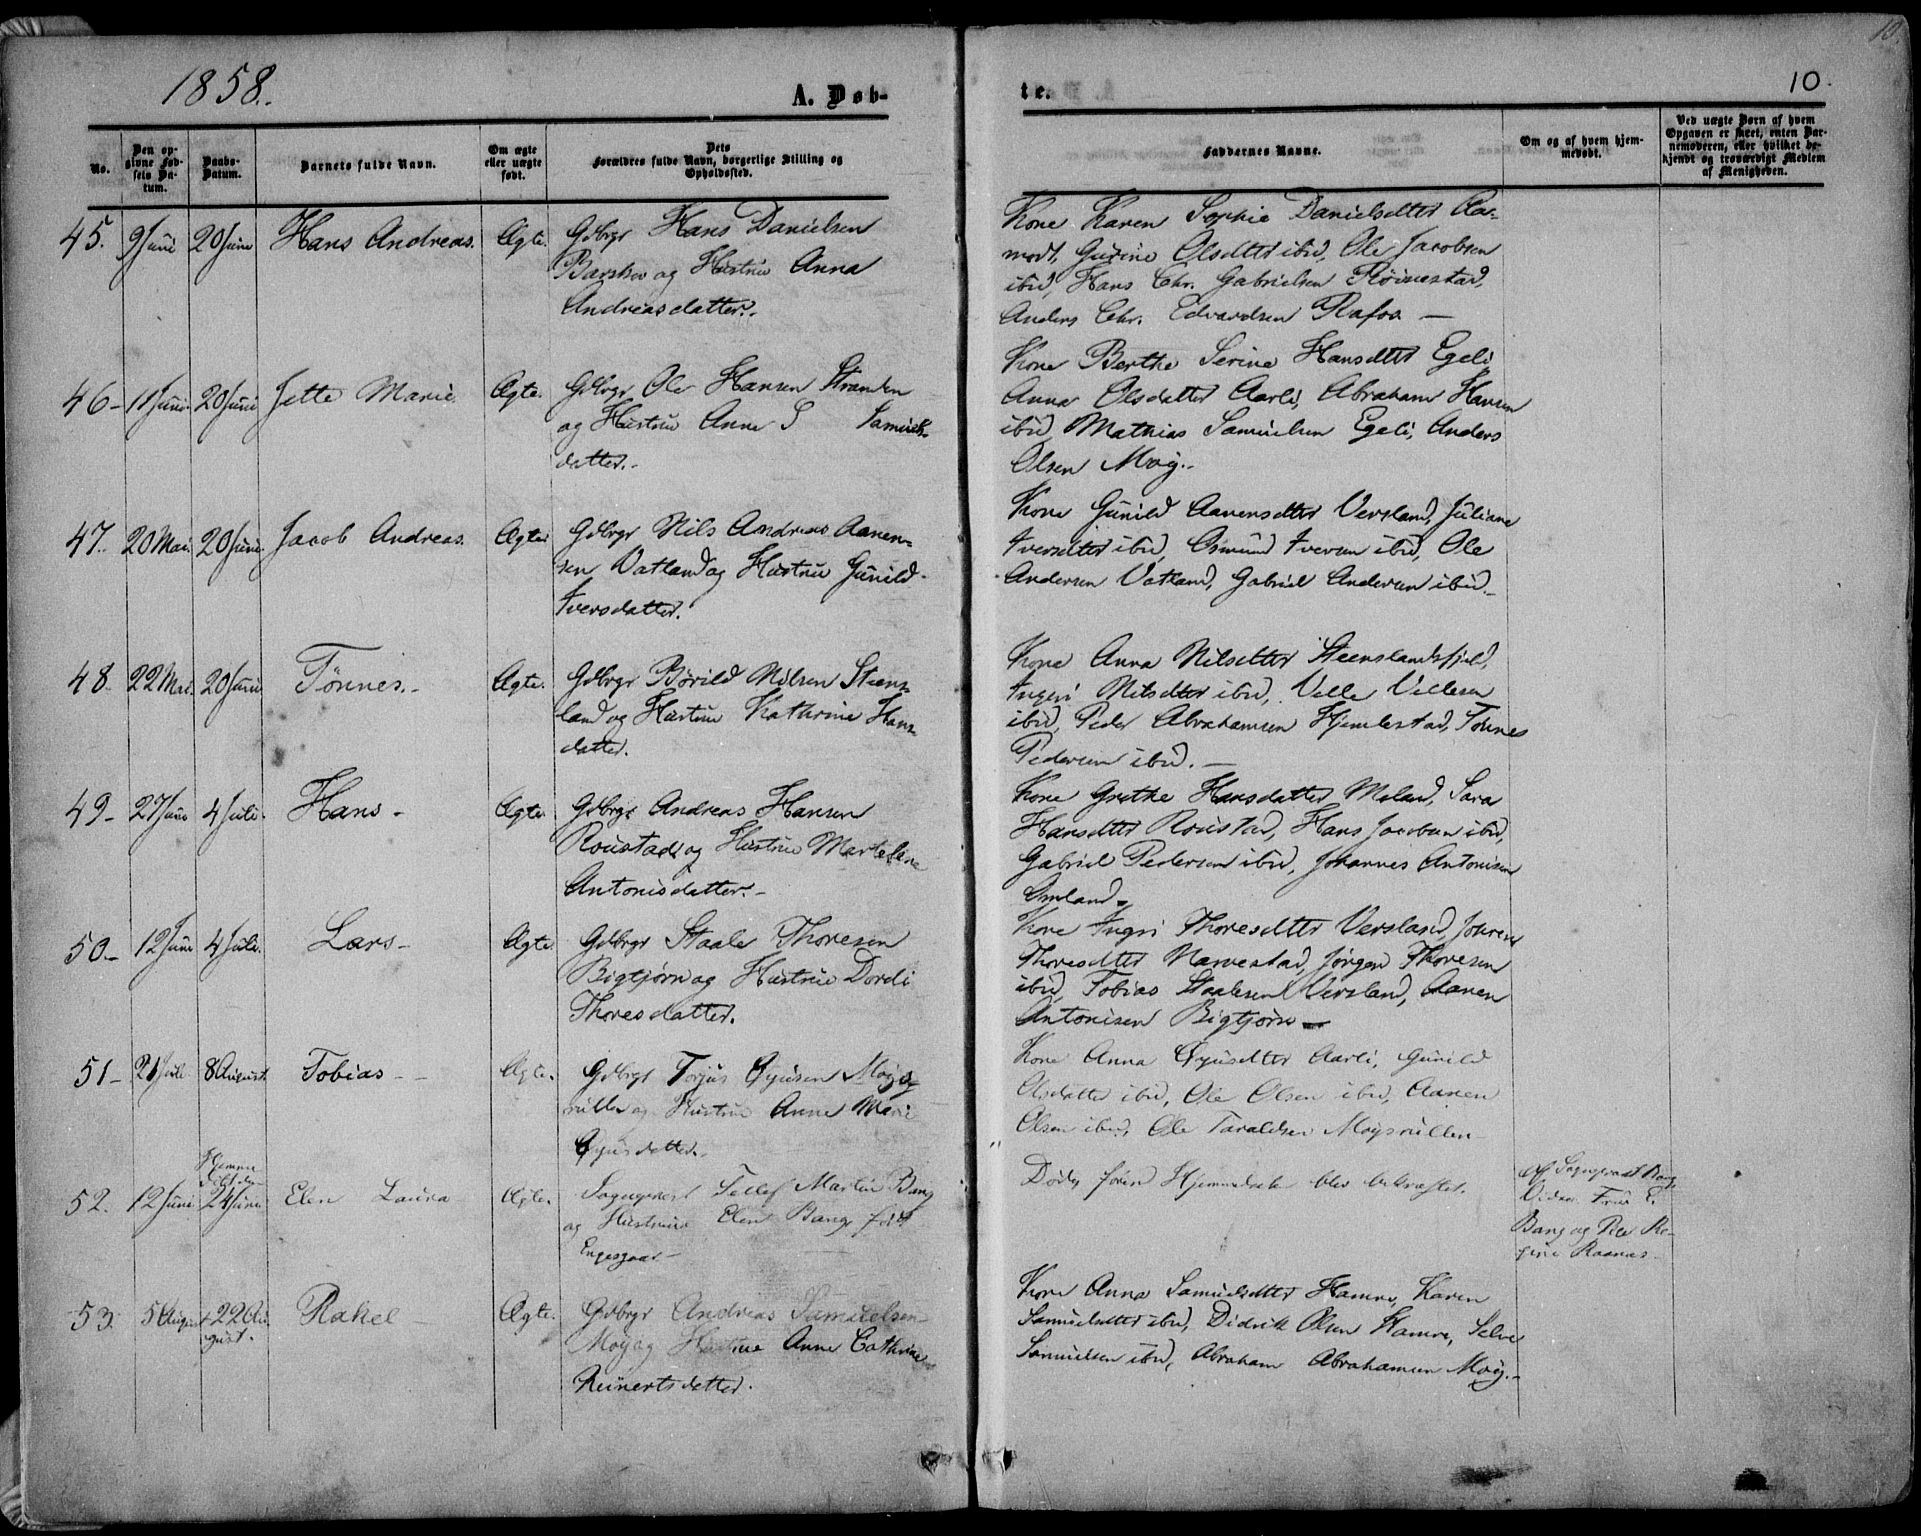 1858.
A. Døb-
te.
10.
10.
No.
Den op-
givne Fød-
sels Da-
tum.
Daabs-
Datum.
Barnets fulde Navn.
Om ægte
eller uægte
født.
Dets
Forældres fulde Navn, borgerlige Stilling og
Opholdssted.
Faddernes Navne.
Om og af hvem hjem-
medøbt.
Ved uægte Børn af hvem
Opgaven er skeet, enten Bar-
nemoderen, eller hvilket be-
kjendt og troværdigt Medlem
af Menigheden.
45. 9 Juni 20 Juni Hans Andreas. Ægte. Gdbrgr Hans Danielsen
Barskov og Hustrue Anna
Andreasdatter.
Kone Karen Sophie Danielsdtter Aa-
modt, Gurine Olsdtter ibid, Ole Jacobsen
ibid, Hans Chr. Gabrielsen Röinestad,
Anders Chr. Edvardsen Rafos —
46- 11 Juni 20 Juni Jette Marie. Ægte. Gdbrgr Ole Hansen Stranden
og Hustrue Anne S Samuels-
datter.
Kone Berthe Serine Hansdtter Egeli
Anna Olsdatter Aarli, Abraham Hansen
ibid Mathias Samuelsen Egeli, Anders
Olsen Moÿ.
47. 20 Mai. 20 Juni. Jacob Andreas. Ægte Gdbrgr Nils Andreas Aanen-
sen Vatland og Hustrue Gunild
Iversdatter.
Kone Gunild Aanensdtter Versland, Juliane
Iversdtter ibid, Osmund Iversen ibid, Ole
Andersen Vatland, Gabriel Andersen ibid.
48. 22 Mai. 20 Juni Tønnes. Ægte. Gdbrgr Börild Nilsen Steens-
land og Hustrue Kathrine Hans-
datter.
Kone Anna Nilsdtter Steenslandsfjeld,
Ingeri Nilsdtter ibid, Velle Villesen
ibid, Peder Abrahamsen Hjemlestad, Tønnes
Pedersen ibid. —
49- 27 Juni 4 Juli. Hans - Ægte. Gdbrgr Andreas Hansen
Roiistad og Hustrue Marteline
Antonisdatter.
Kone Grethe Hansdatter Moland, Sara
Hansdtter Roiistad, Hans Jacobsen ibid,
Gabriel Pedersen ibid, Johannes Antonisen
Omland
50- 12 Juni 4 Juli. Lars- Ægte. Gdbrgr Staale Thoresen
Bigtjørn og Hustrue Dordi
Thoresdatter.
Kone Ingri Thoresdtter Versland,
Thoresdtter Narvestad, Jørgen Thoresen
ibid, Tobias Staalesen Versland, Aanen
Antonisen Bigtjørn —
51- 21 Juli 8 August. Tobias - Ægte. Gdbrgr Torjus Øyusen Moÿs-
rullen og Hustrue Anne Marie
Øyusdatter.
Kone Anna Øyusdtter Aarli, Gunild
Olsdatter ibid, Ole Olsen ibid, Aanen
Olsen ibid, Ole Taraldsen Moysrullen
52. 12 Juni Hjemme
24 Juni Elen Laura Ægte. Sogneprest Tellef Martin Bang
og Hustrue Elen Bang, født
Engesgaar
Døde, förend Hjemmedaab blev bekræftet.
Af Sogneprest Bang,
Vidner Frue E.
Bang og Pige Re-
gine Raanaas
53. 5 August 22 Au-
gust. Rakel Ægte. Gdbrgr Andreas Samuelsen
Moÿ og Hustrue Anne Cathrine
Reinertsdatter.
Kone Anna Samuelsdtter Hamre, Karen
Samuelsdtter ibid, Didrik Olsen Hamre, Selve
Samuelsen ibid, Abraham Abrahamsen Moÿ.